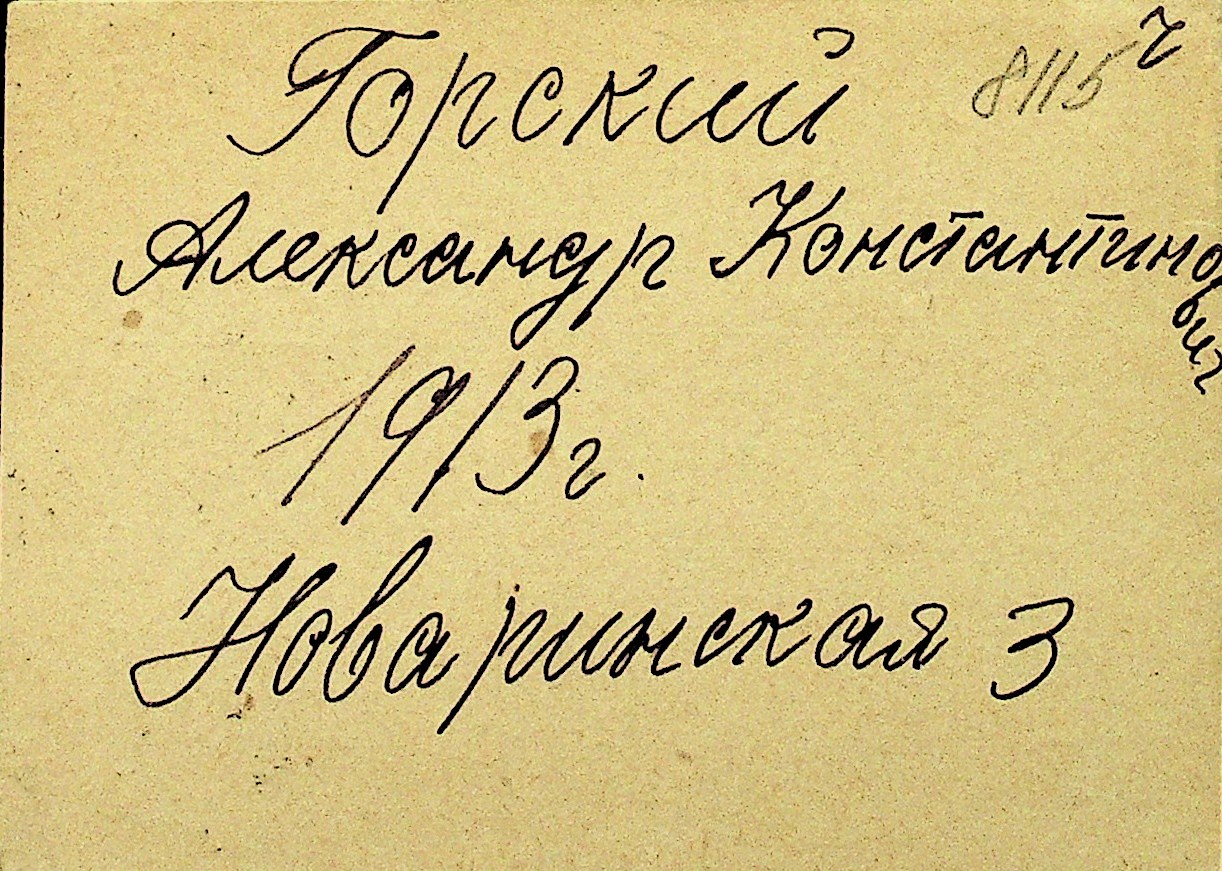 Горский 8115 ч
Александр Константинович
1913 г.
Новаринская 3